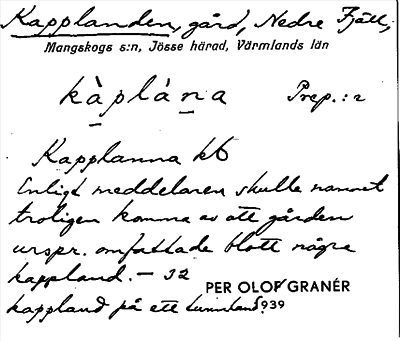 Kapplanden, gård, Nedre Fjäll,
Mangskogs s:n, Jösse härad, Värmlands län
kàplána Prep.: i
Kapplanna kb
Enligt meddelaren skulle namnet
troligen komma av att gården
urspr. omfattade blott några
kappland. — 32
PER OLOF GRANÉR
kappland på ett tunnland. 1939